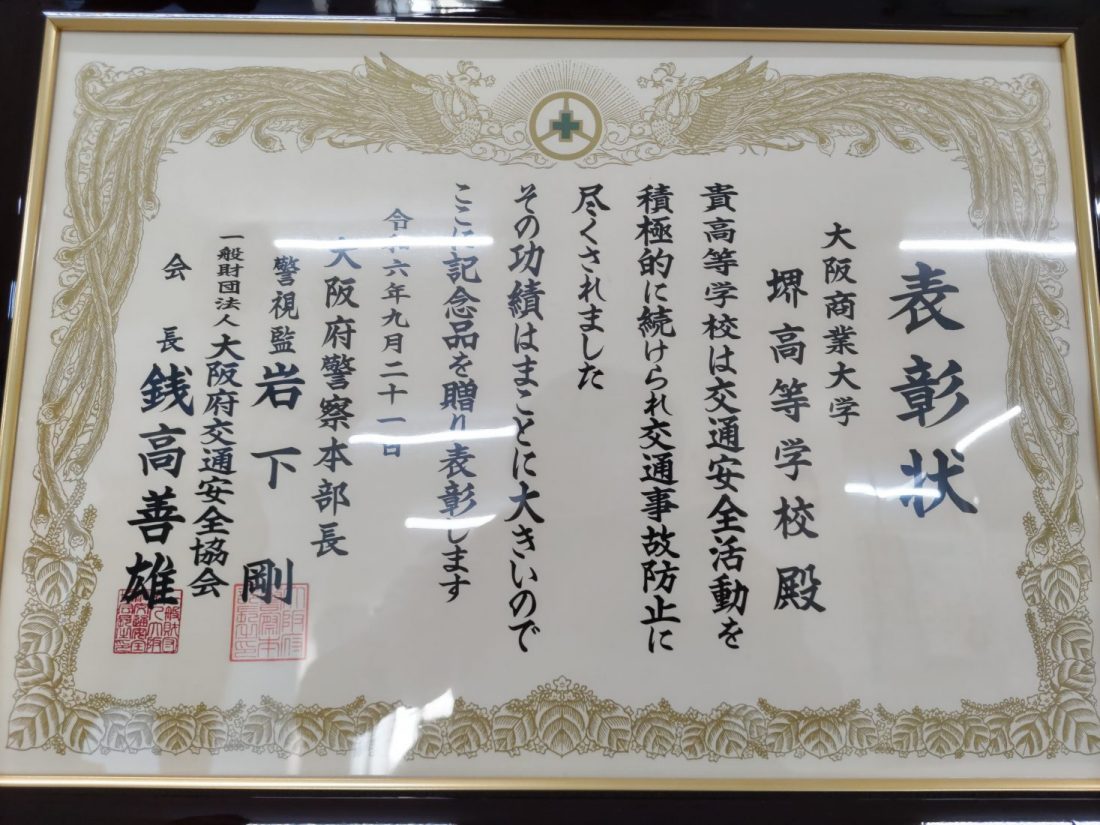 表彰状
大阪商業大学
堺高等学校殿
貴高等学校は交通安全活動を
積極的に続けられ交通事故防止に
尽くされました
その功績はまことに大きいので
ここに記念品を贈り表彰します
令和六年九月二十一日
大阪府警察本部長
警視監 岩下 剛
一般財団法人大阪府交通安全協会
会長 銭高善雄